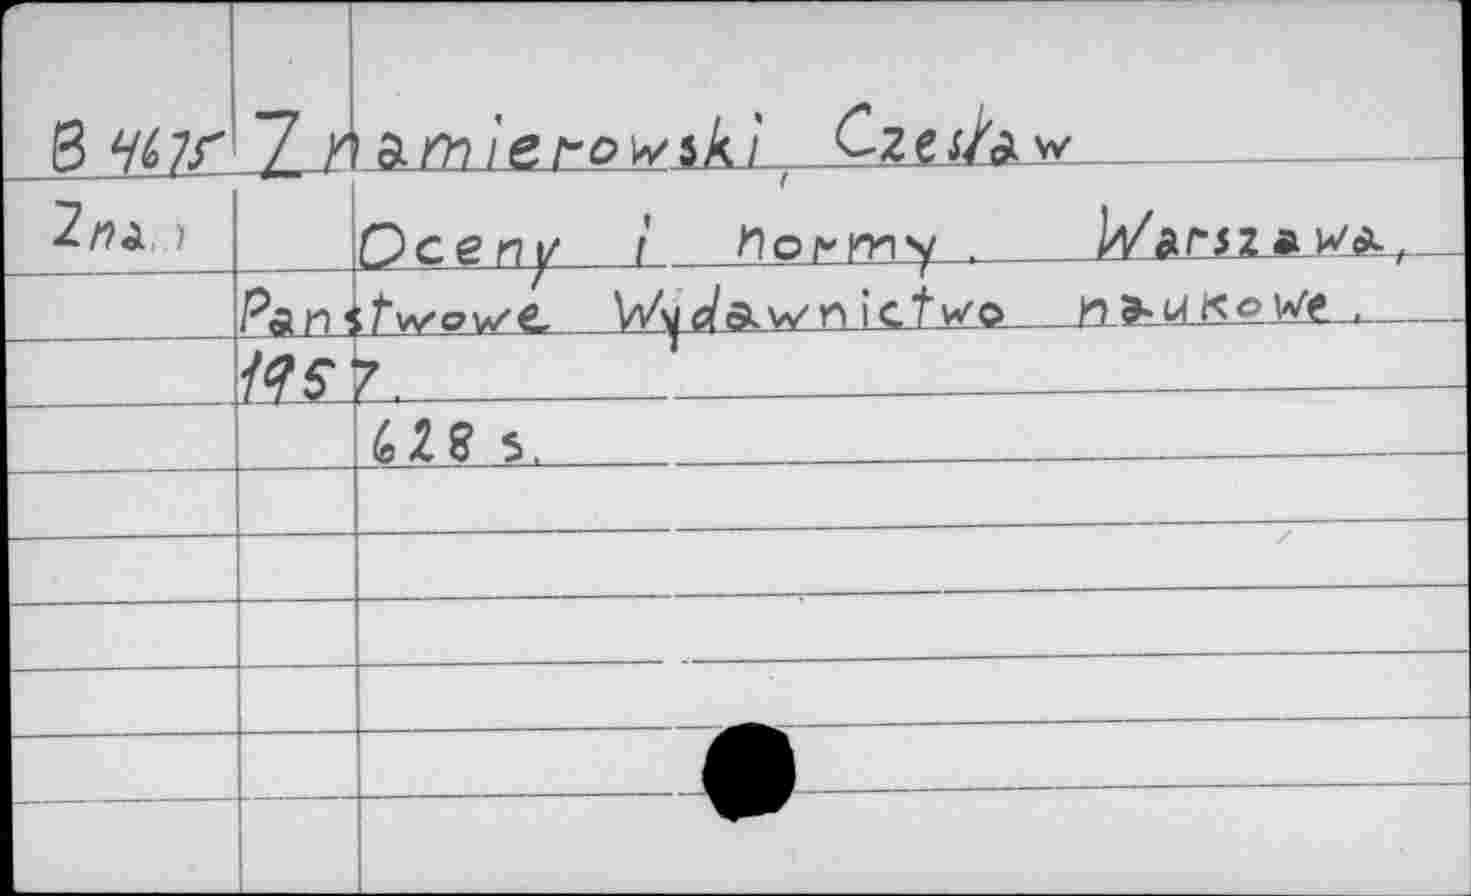 B 4675 Znamierowski, Czesław
Zna.
Oceny i normy. Warszawa,
Panstwowe Wydawnictwo naukowe.
1957.
628 s.